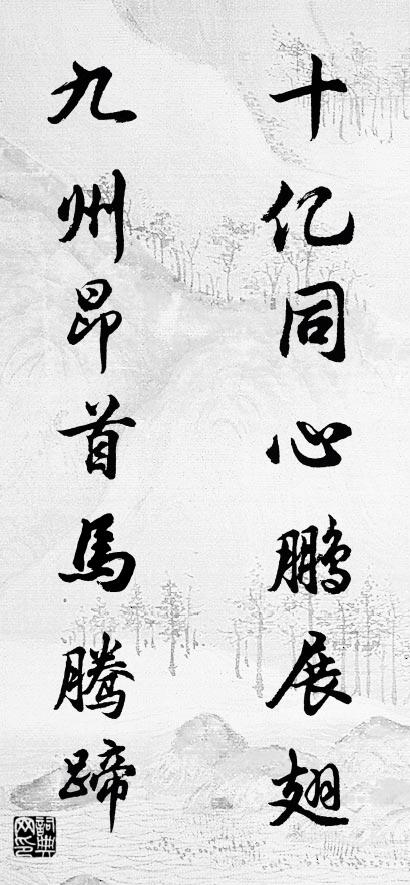 十亿同心鹏展翅
九州昂首馬腾蹄
詞典网印